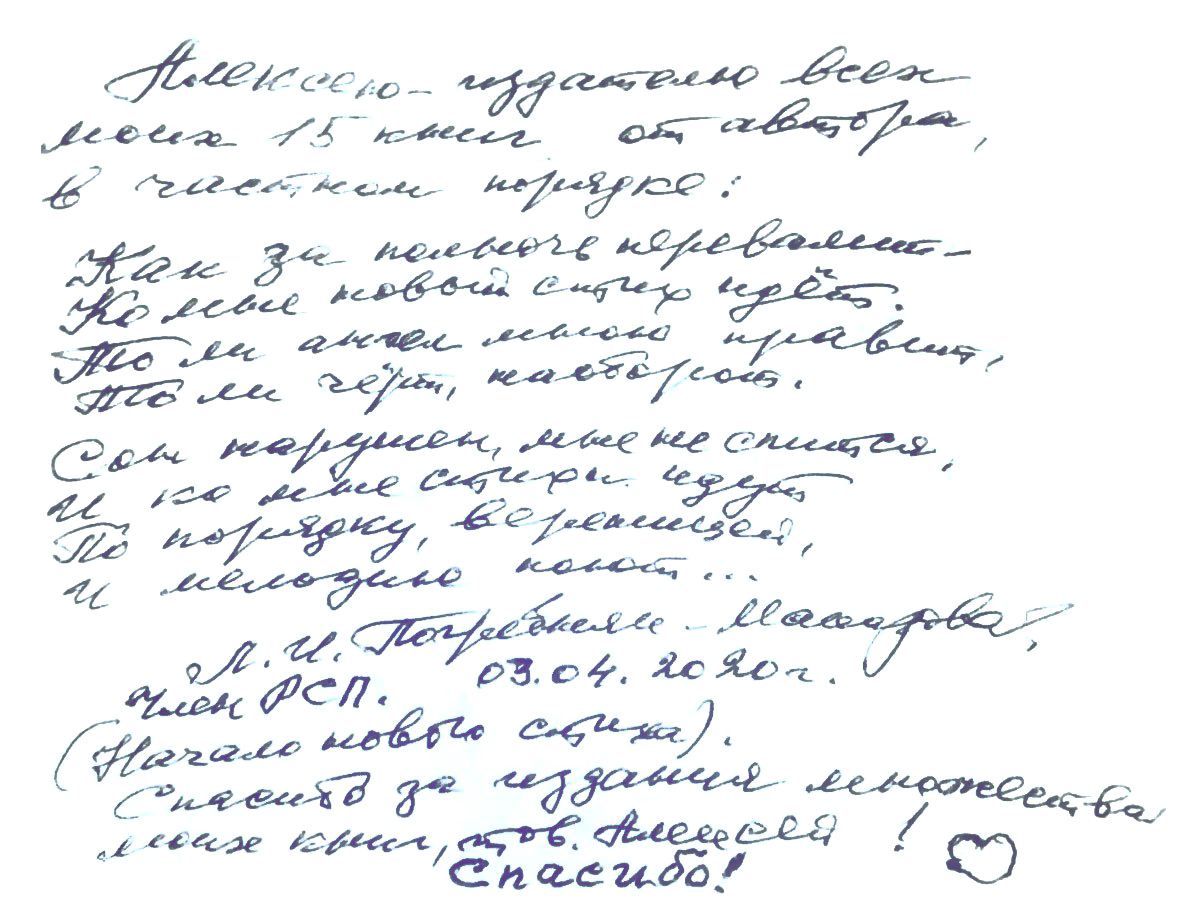 Алексею – издателю всех
моих 15 книг от автора,
в частном порядке:
Как за полночь перевалит –
Ко мне новый стих идёт.
То ли ангел мною правит,
То ли чёрт, наоборот.
Сон нарушен, мне не спится,
И ко мне стихи идут
По порядку, вереницей,
И мелодию поют...
Л. И. Погребняк –
Член РСП. 03.04.2020г.
(Начало нового стиха).
Спасибо за издания множества
моих книг, тов. Алексей!
Спасибо!